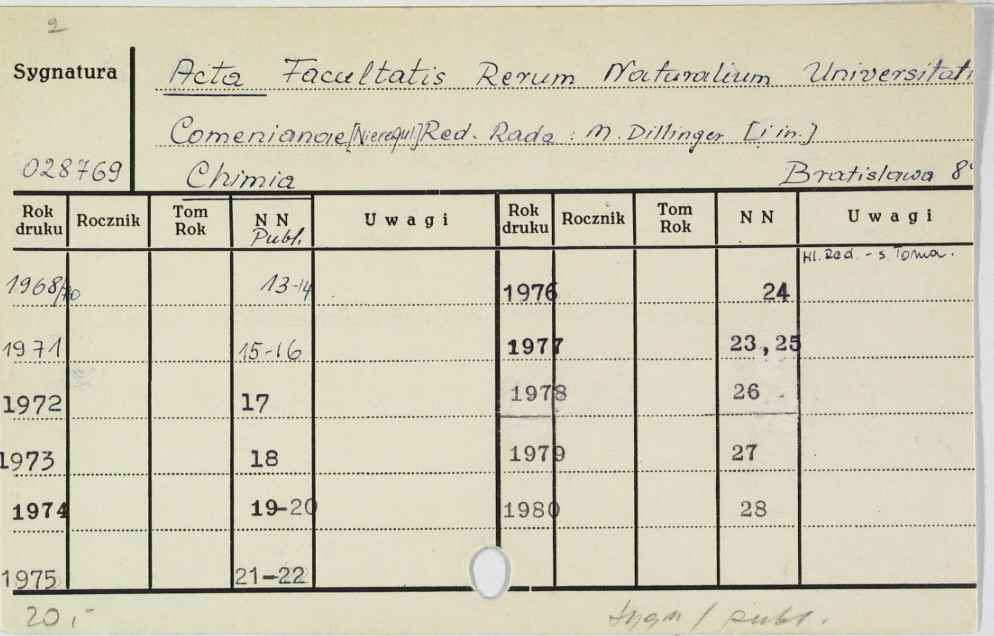 2
Sygnatura
Acta Facultatis Rerum Naturalium Universitati
Comenianae [Nieregul.] Red. Rada: M. Dillinger [i in.]
028769 Chimia Bratislawa 8°
Rok druku Rocznik Tom Rok NN Publ. Uwagi Rok druku Rocznik Tom Rok NN Uwagi
Hl. Red. - s. Toma.
1968/70 13-14 1976 24
1971 15-16 1977 23,25
1972 17 1978 26
1973 18 1979 27
1974 19-20 1980 28
1975 21-22
20,- sygn / publ.